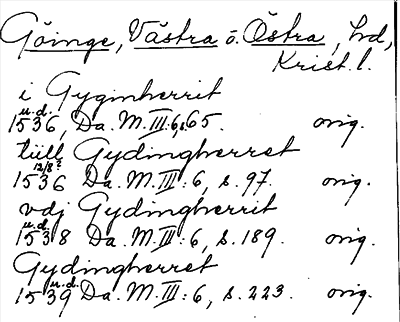 Göinge, Västra o. Östra, hrd,
Krist. l.
i Gyginherrit
u.d.
1536, Da. M. III:6, s. 65. orig.
tüll Gydingherret
12/8?
1536 Da. M. III: 6, s. 97. orig.
vdj Gydingherrit
u.d.
1538 Da. M. III: 6, s. 189. orig.
Gydingherret
u.d.
1539 Da. M. III: 6, s. 223. orig.